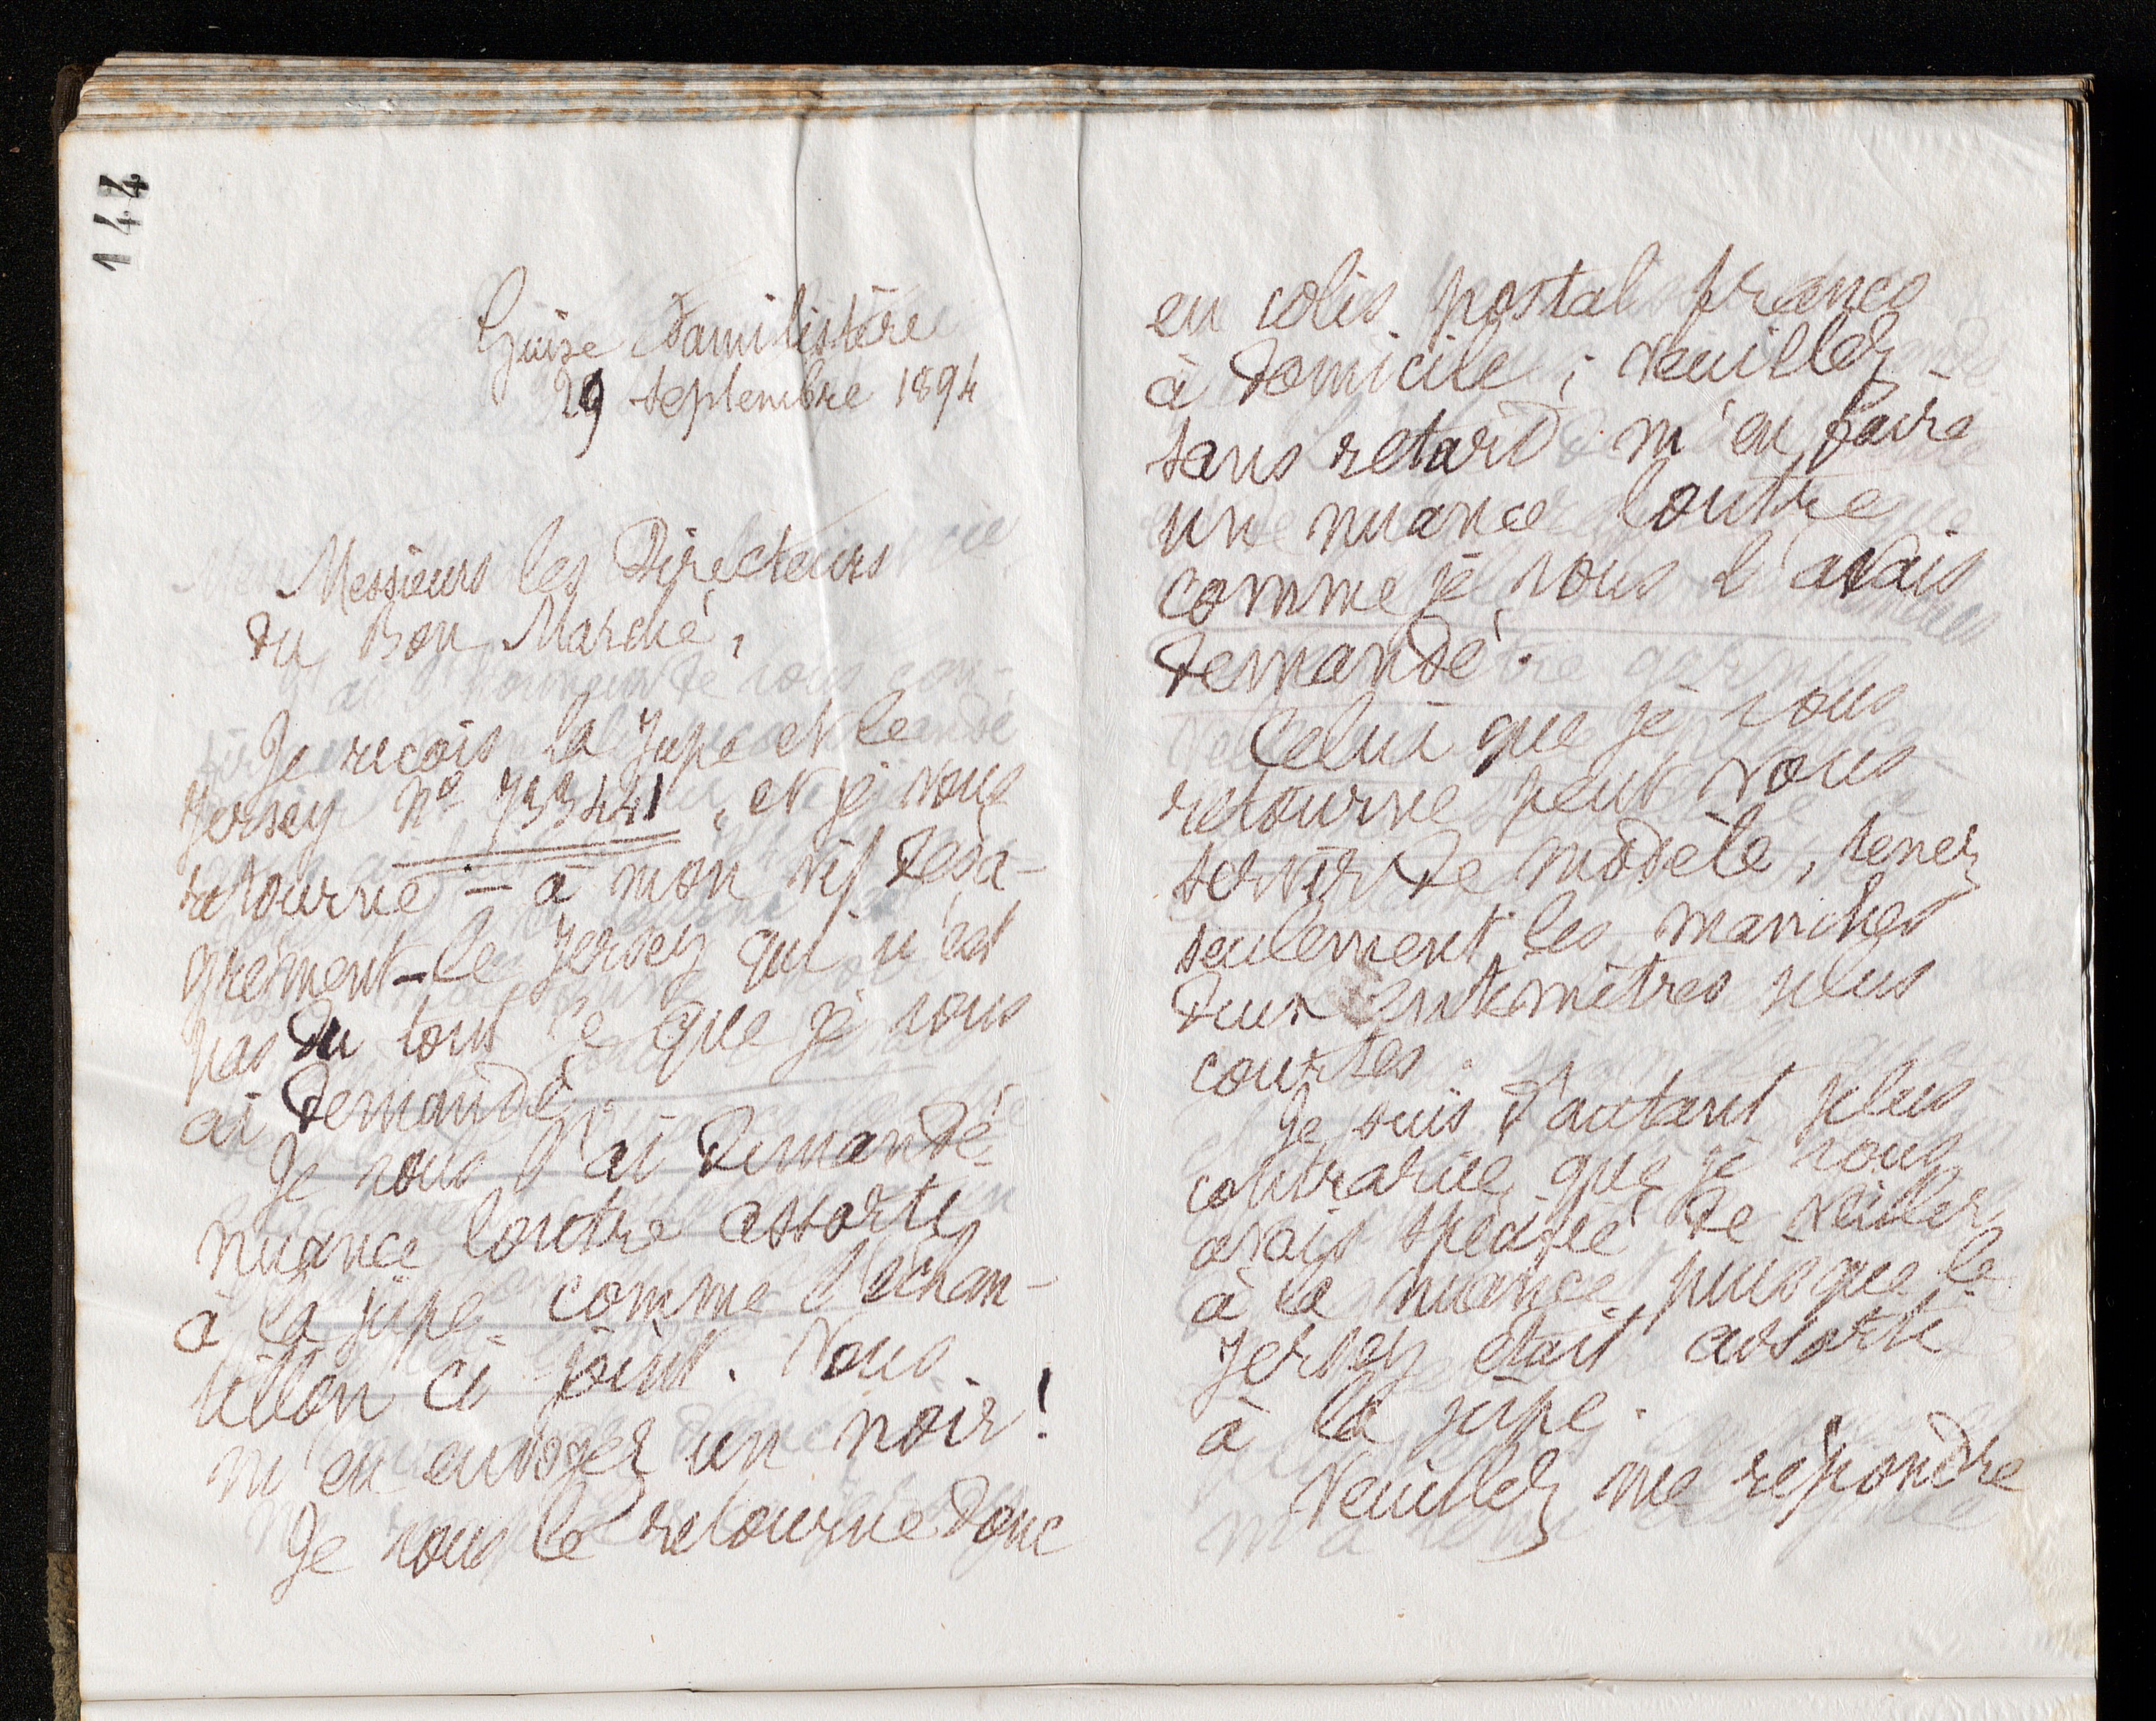 144
Guise Familistère
29 septembre 1894
Messieurs les Directeurs
du Bon Marché,
Je reçois la Jupe et le
Jersey Nº 733441, et je vous
retourne - à mon vif désa-
grément - le Jersey qui n'est
pas du tout ce que je vous
ai demandé.
Je vous l'ai demandé
nuance loutre assorti
à la jupe comme l'échan-
tillon ci joint. Vous
m'en envoyez un noir!
Je vous le retourne donc
en colis postal franco
à domicile; veuillez
sans retard m'en faire
un nuance loutre
comme je vous l'avais
demandé.
Celui que je vous
retourne peut vous
servir de modèle, tenez
seulement les manches
deux centimètres plus
courtes.
Je suis d'autant plus
contrariée que je vous
avais spécifié de veiller
à la nuance puisque le
Jersey était assorti
à la jupe.
Veuillez me répondre